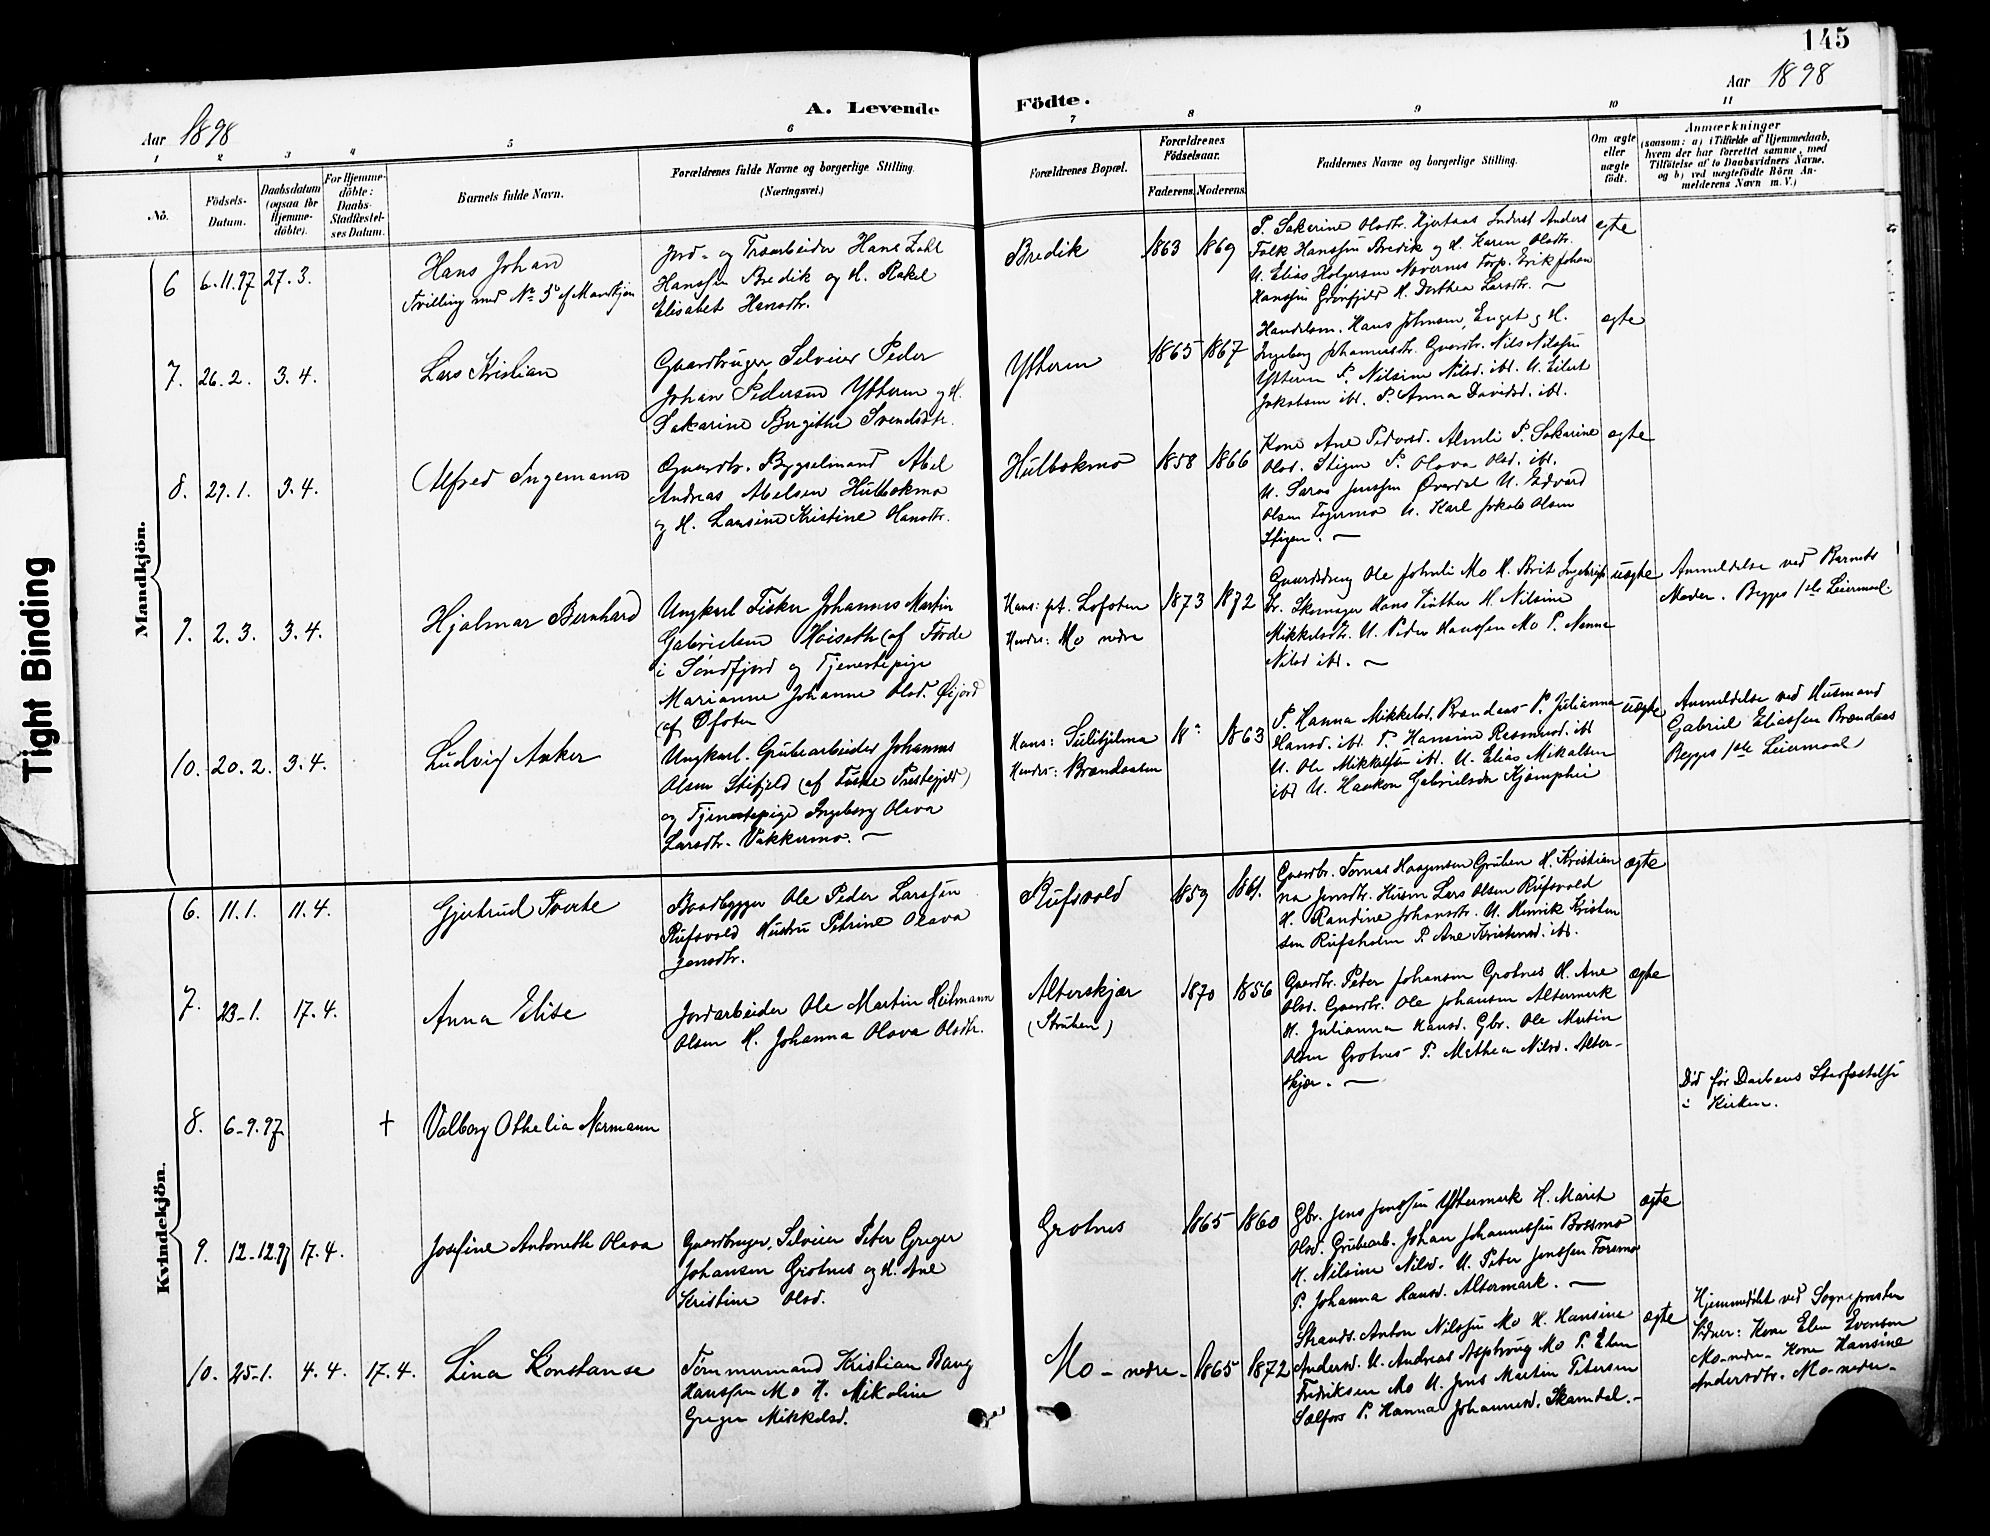 145
Aar 1898
A. Levende Födte.
Aar 1898
1 2 3 4 5 6 7 8 9 10 11
No.
Födsels-Datum.
Daabsdatum (ogsaa for Hjemme-döbte).
For Hjemme-döbte: Daabs-Stadfæstel-ses Datum.
Barnets fulde Navn.
Forældrenes fulde Navne og borgerlige Stilling.
(Næringsvei.)
Forældrenes Bopæl.
Forældrenes Födselsaar.
Faderens. Moderens.
Faddernes Navne og borgerlige Stilling.
Om ægte eller uægte födt.
Anmærkninger
(saasom: a) i Tilfælde af Hjemmedaab,
hvem der har forrettet samme, med
Tilföielse af to Daabsvidners Navne,
og b) ved uægtefödte Börn An-
melderens Navn m. V.)
Tight Binding
Mandkjön.
6 6.11.97 27.3.
Hans Johan
Tvilling med No 5 af Mandkjøn
Jord- og Træarbeider Hans Zahl
Hanssen Bredik og H. Rakel
Elisabet Hansdtr.
Bredik
1863 1869
P. Sakarine Olsdtr. Hjertaas Inderst Anders
Falk Hanssen Bredik og H. Karen Olsdtr.
U. Elias Holgersen Nævernes Forp. Erik Johan
Hanssen Grønfjeld H. Dorthea Larsdtr. —
ægte
7. 26.2. 3.4.
Lars Kristian
Gaardbruger Selveier Peder
Johan Pedersen Ytteren og H.
Sakarine Birgithe Svendsdtr.
Ytteren
1865 1867
Handelsm. Hans Johnsen, Enget og H.
Ingeborg Johannesdtr. Gaardbr. Nils Nilssen
Ytteren P. Nilsine Nilsd. ibd. U. Eilert
Jakobsen ibd. P. Anna Davidsd. ibd.
ægte
8. 29.1. 3.4.
Alfred Ingemann
Gaardbr. Bygselmand Abel
Andreas Abelsen Hulbækmo
og H. Laursine Kristine Hansdtr.
Hulbækmo
1858 1866
Kone Ane Pedersd. Almli P. Sakarine
Olsd. Stigen P. Olava Olsd. ibd.
U. Jenssen Øverdal U. Edvard
Olsen Fagermo U. Karl Jakob Olsen
Stigen. —
ægte
9. 2.3. 3.4.
Hjalmar Bernhard
Ungkarl Fisker Johannes Martin
Gabrielsen Høiseth (af Førde
i Søndfjord og Tjenestepige
Marianne Johanne Olsd. Øijord
(af Ofoten
Hans: pt. Lofoten
Hendes: Mo nedre
1873 1872
Gaardsdreng Ole Johnli Mo H. Brit
Skomager Hans H. Nilsine
Mikkelsdtr. U. Peder Hanssen Mo P. Nanna
Nilsd ibd. —
uægte
Anmeldelse ved Barnets
Moder. Begges 1ste Leiermaal
10. 20.2. 3.4.
Ludvig Anker
Ungkarl. Grubearbeider Johannes
Olsen Stifjeld (af Fuske Præstegjeld)
og Tjenestepige Ingeborg Olava
Larsdtr. Vakkermo. —
Hans: Sulitjelma
Hendes: Brændaasen
18 1863
P. Hanna Mikkelsd. Brændaas P. Julianna
Hansd. ibd. P. Hansine Rasmusd. ibd
U. Ole Mikkelsen ibd. U. Elias Mikalsen
ibd U. Haakon Gabrielsen
uægte
Anmeldelse ved Husmand
Gabriel Eliassen Brændaas
Begges 1ste Leiermaal
Kvindekjön.
6. 11.1. 11.4.
Gjertrud Tverte
Baadbygger Ole Peder Larssen
Rufsvold Hustru Petrine Olava
Jensdtr.
Rufsvold
1859 1861.
Gaardbr. Tomas Haagensen Gruben H. Kristian
na Jensdtr. Husm Lars Olsen Rufsvold
H. Randine Johansdtr. U. Henrik Kristen
sen Rufsholm P. Ane Kristensd. ibd.
ægte
7. 23-1. 17.4.
Anna Elise
Jordarbeider Ole Martin Heitmann
Olsen H. Johanna Olava Olsdtr.
Alterskjær
(Struben)
1870 1856
Gaardbr. Peter Johansen Grotnes H. Ane
Olsd. Gaardbr. Ole Johansen Altermark
H. Julianna Hansd. Gbr. Ole Martin
Olsen Grotnes P. Mathea Nilsd. Alter-
skjær. —
ægte
8. 6-9.97
+
Valborg Othelia Normann
Død før Daabens Stadfæstelse
i Kirken.
9. 12-12.97 17.4.
Josefine Antonette Olava
Gaardbruger, Selveier Peter Greger
Johansen Grotnes og H. Ane
Kristine Olsd.
Grotnes
1865 1860
Gbr. Jens Jenssen Yttermark H. Marit
Olsd. Grubearb. Johan Johannessen Bossmo
H. Nilsine Nilsd. U. Peter Jenssen Forsmo
P. Johanna Hansd. Altermark. —
ægte
10. 25-1. 4.4. 17.4.
Lina Konstanse
Tømmermand Kristian Bang
Hanssen Mo H. Mikoline
Greger Mikkelsd.
Mo - nedre -
1865 1872
Strands. Anton Nilssen Mo H. Hansine
Andersd. U. Andreas Mo P. Elen
Fredriksen Mo U. Jens Martin Petersen
Selfors P. Hanna Johannesd. Skamdal. -
ægte
Hjemmedøbt ved Sognepræsten
Vidner: Kone Elen Svensen
Mo-nedre- Kone Hansine
Andersdtr. Mo-nedre-